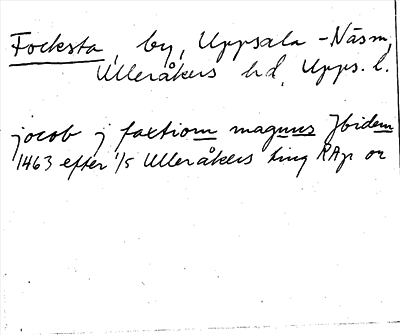 Focksta, by, Uppsala-Näsm,
Ulleråkers hd, Upps. l.
jocob j faxtiom magnus Jbidem
1463 efter 1/5 Ulleråkers ting RAp or